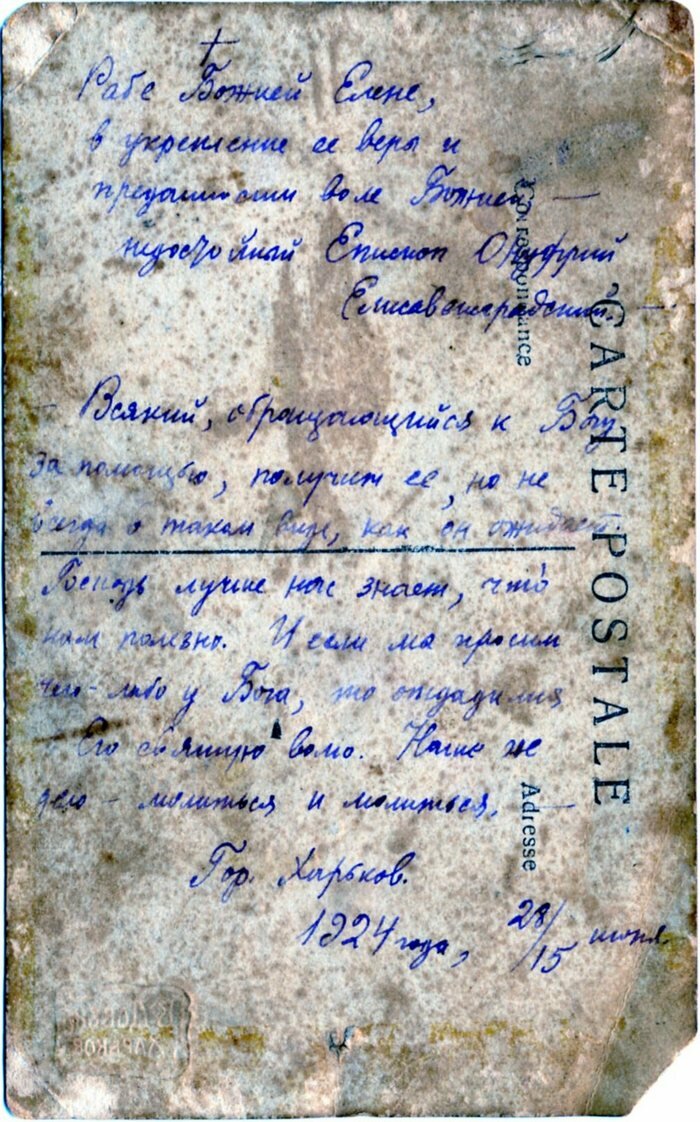 Рабе Божией Елене,
в укрепление ее веры и
преданности воле Божией —
недостойный Епископ Онуфрий
Елисаветградский.
Всякий, обращающийся к Богу
за помощью, получит ее, но не
всегда в таком виде, как он ожидает.
Господь лучше нас знает, что́
нам полезно. И если мы просим
чего-либо у Бога, то
Его святую волю. Наше же
дело – молиться и молиться. —
Гор. Харьков.
1924 года, 28/15 июня.
CARTE POSTALE
Correspondance
Adresse
ХАРЬКОВ